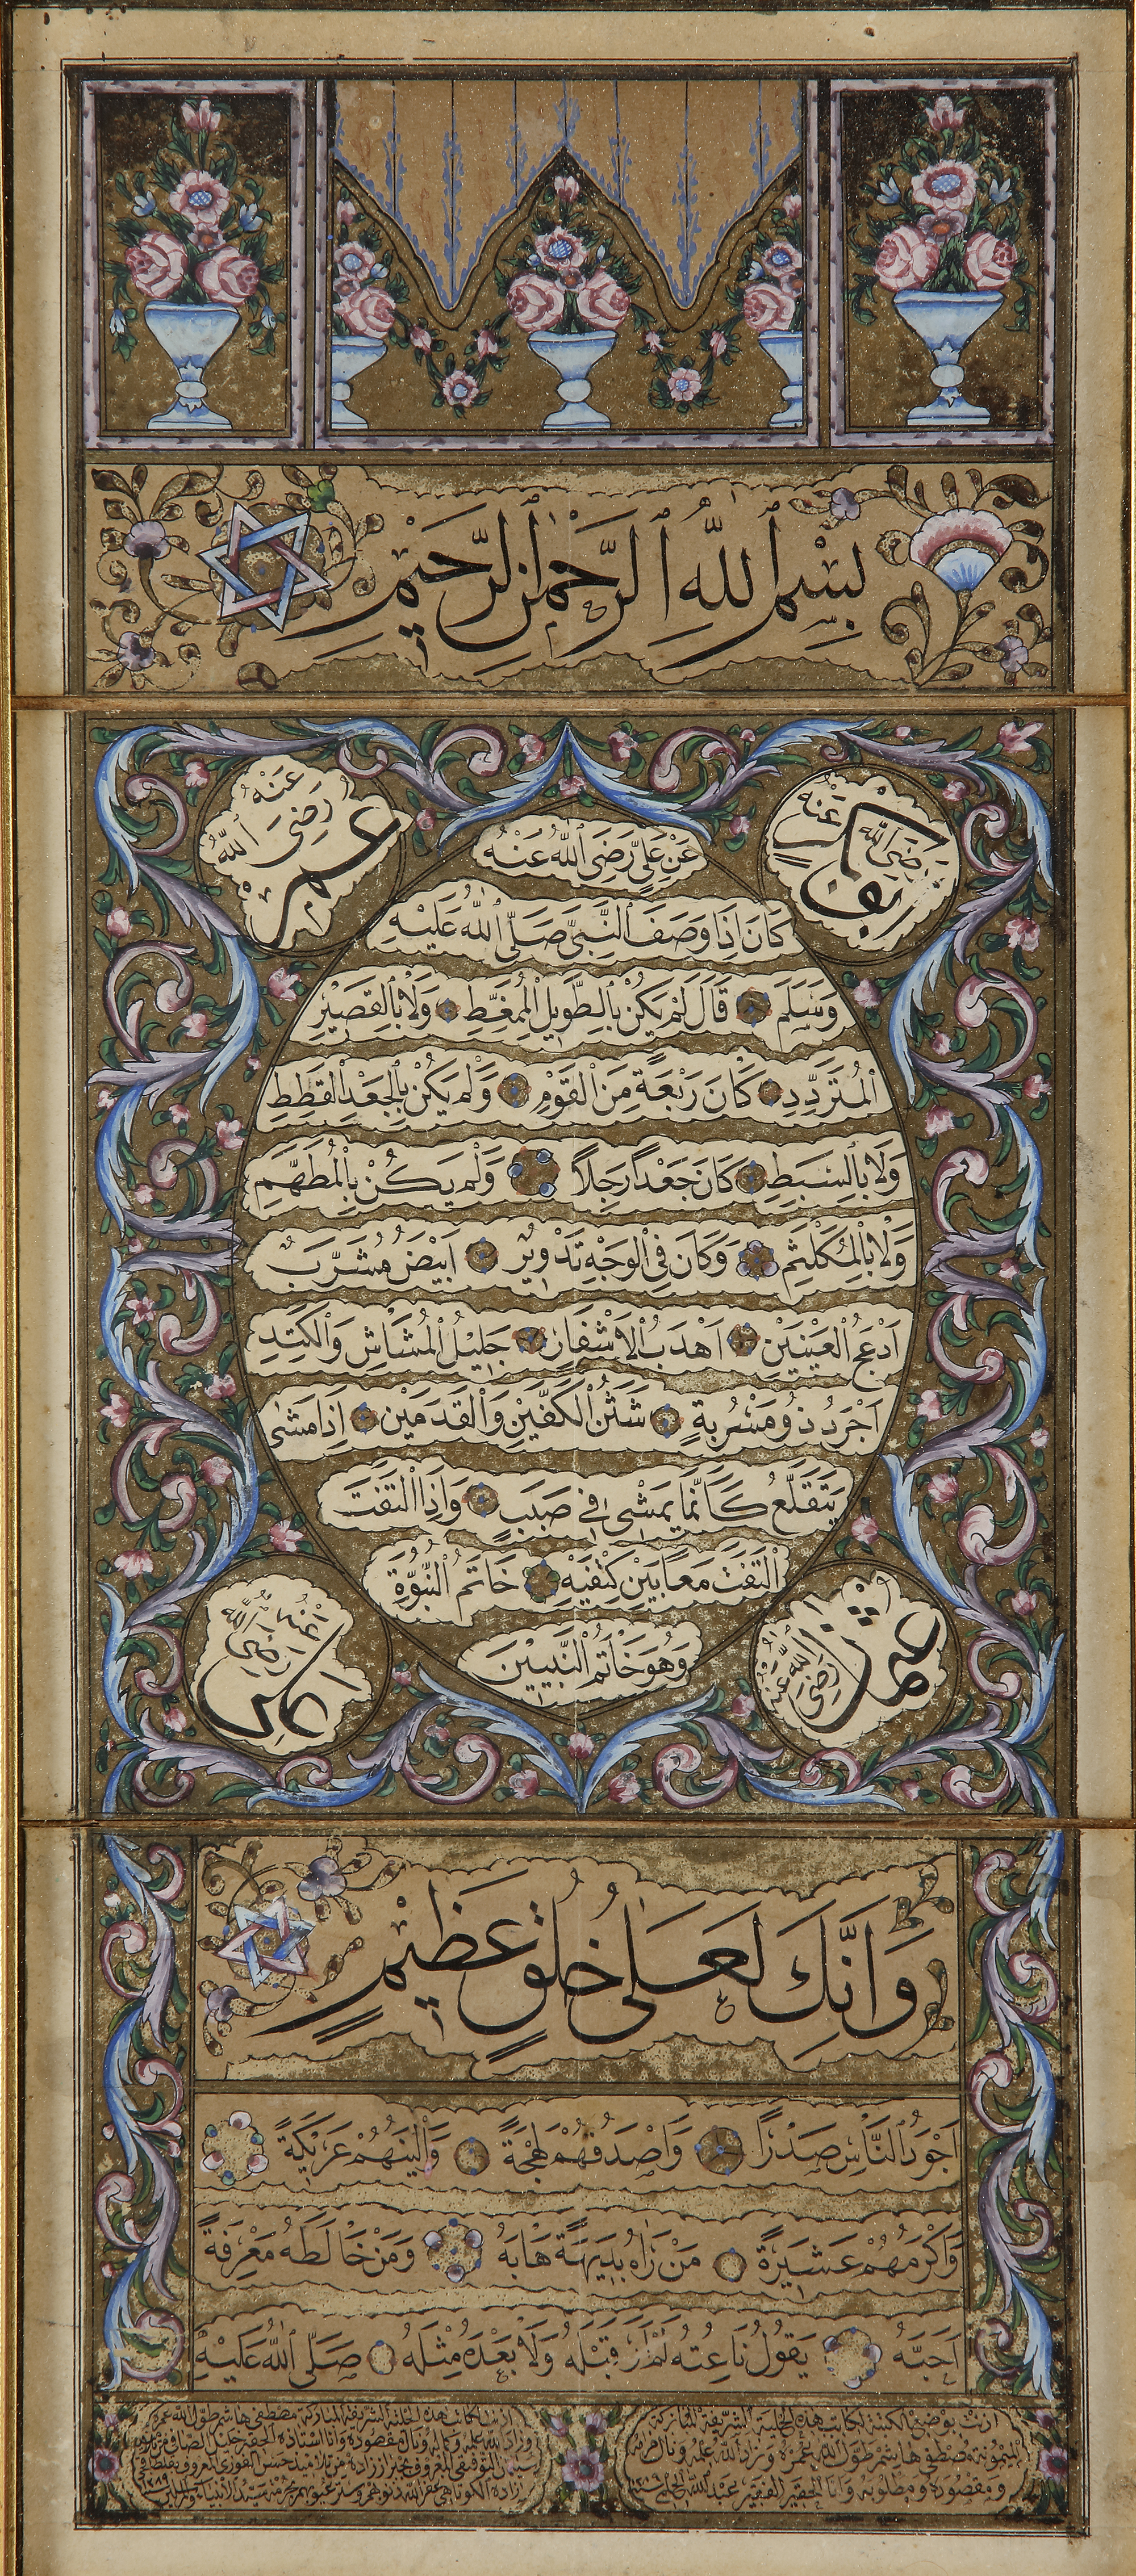 بِسْمِ اللهِ الرَّحْمٰنِ الرَّحِيمِ
ابوبكر رَضِيَ اللهُ عَنْهُ
عمر رَضِيَ اللهُ عَنْهُ
عَنْ عَلِيٍّ رَضِيَ اللهُ عَنْهُ
كَانَ اِذَا وَصَفَ النَّبِيَّ صَلَّى اللهُ عَلَيْهِ
وَسَلَّمَ قَالَ لَمْ يَكُنْ بِالطَّوِيلِ الْمُمَغَّطِ وَلَا بِالْقَصِيْرِ
الْمُتَرَدِّدِ كَانَ رَبْعَةً مِنَ الْقَوْمِ وَلَمْ يَكُنْ بِالْجَعْدِ الْقَطِطِ
وَلَا بِالسَّبِطِ كَانَ جَعْداً رَجِلاً وَلَمْ يَكُنْ بِالْمُطَهَّمِ
وَلَا بِالْمُكَلْثَمِ وَكَانَ فِي الْوَجْهِ تَدْوِيرٌ اَبْيَضُ مُشَرَّبٌ
اَدْعَجُ الْعَيْنَيْنِ اَهْدَبُ الْاَشْفَارِ جَلِيْلُ الْمُشَاشِ وَالْكَتَدِ
اَجْرَدُ ذُو مَسْرُبَةٍ شَثْنُ الْكَفَّيْنِ وَالْقَدَمَيْنِ اِذَا مَشٰى
يَتَقَلَّعُ كَاَنَّمَا يَمْشِي فِي صَبَبٍ وَاِذَا الْتَفَتَ
الْتَفَتَ مَعاً بَيْنَ كَتِفَيْهِ خَاتَمُ النُّبُوَّةِ
وَهُوَ خَاتَمُ النَّبِيِّينَ
عثمان رَضِيَ اللهُ عَنْهُ
رَضِيَ اللهُ عَنْهُ
وَاِنَّكَ لَعَلٰى خُلُقٍ عَظِيْمٍ
اَجْوَدُ النَّاسِ صَدْرًا وَاَصْدَقُهُمْ لَهْجَةً وَاَلْيَنُهُمْ عَرِيكَةً
وَاَكْرَمُهُمْ عَشِيْرَةً مَنْ رَاٰهُ بَدِيهَةً هَابَهُ وَمَنْ خَالَطَهُ مَعْرِفَةً
اَحَبَّهُ يَقُولُ نَاعِتُهُ لَمْ اَرَ قَبْلَهُ وَلَا بَعْدَهُ مِثْلَهُ صَلَّى اللهُ عَلَيْهِ